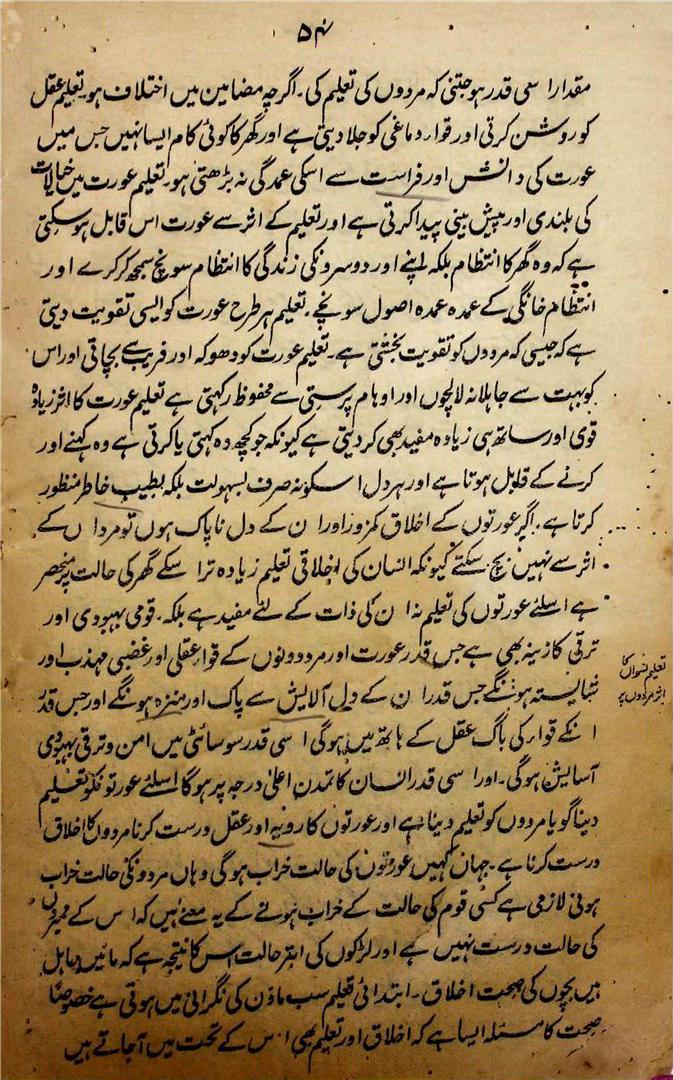 ۵۴
مقدار اسی قدر ہو جتنی کہ مردوں کی تعلیم کی۔ اگرچہ مضامین میں اختلاف ہو۔ تعلیم عقل
کو روشن کرتی اور قواء دماغی کو جلا دیتی ہے اور گھر کا کوئی کام ایسا نہیں جس میں
عورت کی دانش اور فراست سے اسکی عمدگی نہ بڑھتی ہو۔ تعلیم عورت میں خیالات
کی بلندی اور پیش بینی پیدا کرتی ہے اور تعلیم کے اثر سے عورت اس قابل ہو سکتی
ہے کہ وہ گھر کا انتظام بلکہ اپنے اور دوسرونکی زندگی کا انتظام سونچ سمجھ کر کرے اور
انتظام خانگی کے عمدہ عمدہ اصول سونچے۔ تعلیم ہر طرح عورت کو ایسی تقویت دیتی
ہے کہ جیسی کہ مردوں کو تقویت بخشتی ہے۔ تعلیم عورت کو دھوکہ اور فریب سے بچاتی اور اس
کو بہت سے جاہلانہ لالچوں اور اوہام پرستی سے محفوظ رکہتی ہے تعلیم عورت کا اثر زیادہ
قوی اور ساتھ ہی زیادہ مفید بھی کر دیتی ہے کیونکہ جو کچھ وہ کہتی یا کرتی ہے وہ کہنے اور
کرنے کے قابل ہوتا ہے اور ہر دل اسکو نہ صرف بسہولت بلکہ بطیب خاطر منظور
کرتا ہے۔ اگر عورتوں کے اخلاق کمزور اور ان کے دل ناپاک ہوں تو مرد ان کے
اثر سے نہیں بچ سکتے کیونکہ انسان کی اخلاقی تعلیم زیادہ تر اسکے گھر کی حالت پر منحصر
ہے اسلئے عورتوں کی تعلیم نہ ان کی ذات کے لئے مفید ہے بلکہ۔ قومی بہبودی اور
ترقی کا زینہ بھی ہے جس قدر عورت اور مرد دونوں کے قواء عقلی اور غضبی مہذب اور
شایستہ ہونگے جس قدر ان کے دل آلایش سے پاک اور منزہ ہونگے اور جس قدر
انکے قواء کی باگ عقل کے ہاتھ میں ہوگی اسی قدر سوسائٹی میں امن و ترقی بہبودی
آسایش ہوگی۔ اور اسی قدر انسان کا تمدن اعلیٰ درجہ پر ہوگا اسلئے عورتونکو تعلیم
دینا گویا مردوں کو تعلیم دینا ہے اور عورتوں کا رویہ اور عقل درست کرنا مردوں کا اخلاق
درست کرنا ہے۔ جہاں کہیں عورتوں کی حالت خراب ہوگی وہاں مردونکی حالت خراب
ہونی لازمی ہے کسی قوم کی حالت کے خراب ہونے کے یہ معنے ہیں کہ اس کے ممبروں
کی حالت درست نہیں ہے اور لڑکوں کی ابتر حالت اس کا نتیجہ ہے کہ مائیں جاہل
ہیں بچوں کی صحت اخلاق۔ ابتدائی تعلیم سب ماؤں کی نگرانی میں ہوتی ہے خصوصاً
صحت کا مسئلہ ایسا ہے کہ اخلاق اور تعلیم بھی اس کے تحت میں آجاتے ہیں
تعلیم نسواں کا
اثر مردوں پر